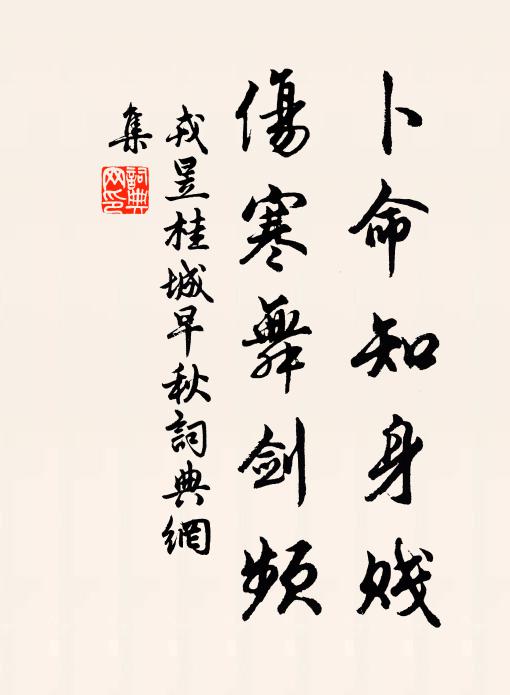 卜命知身贱
傷寒舞劍頻
戎昱桂城早秋詞典網
集
詞典網印